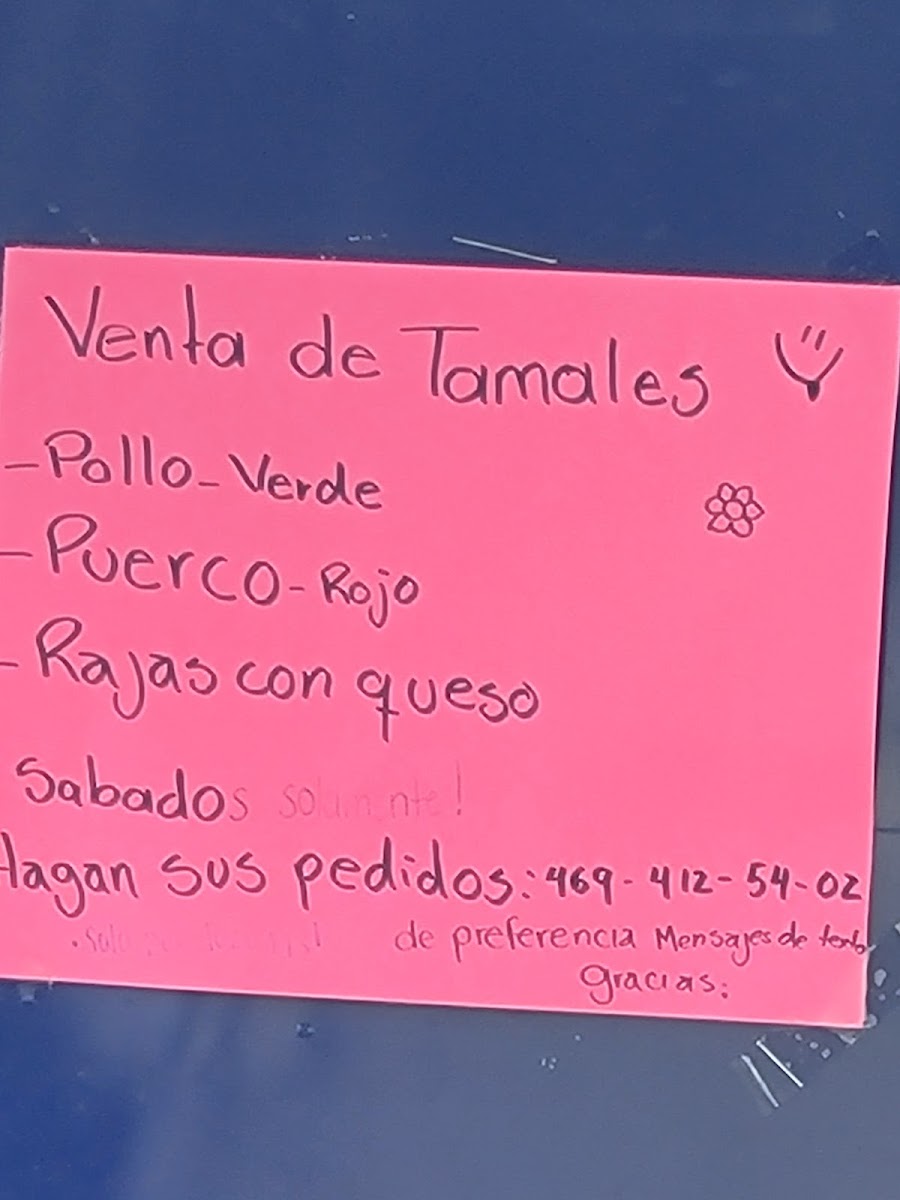 Venta de Tamales
- Pollo - Verde
- Puerco - Rojo
- Rajas con queso
Sabados solamente!
Hagan sus pedidos: 469-412-54-02
de preferencia Mensajes de texto
gracias: